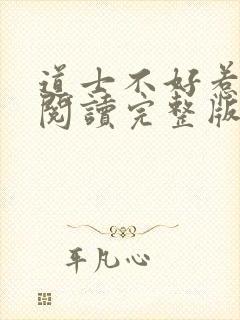 道士不好惹
閱讀完整版
平凡心